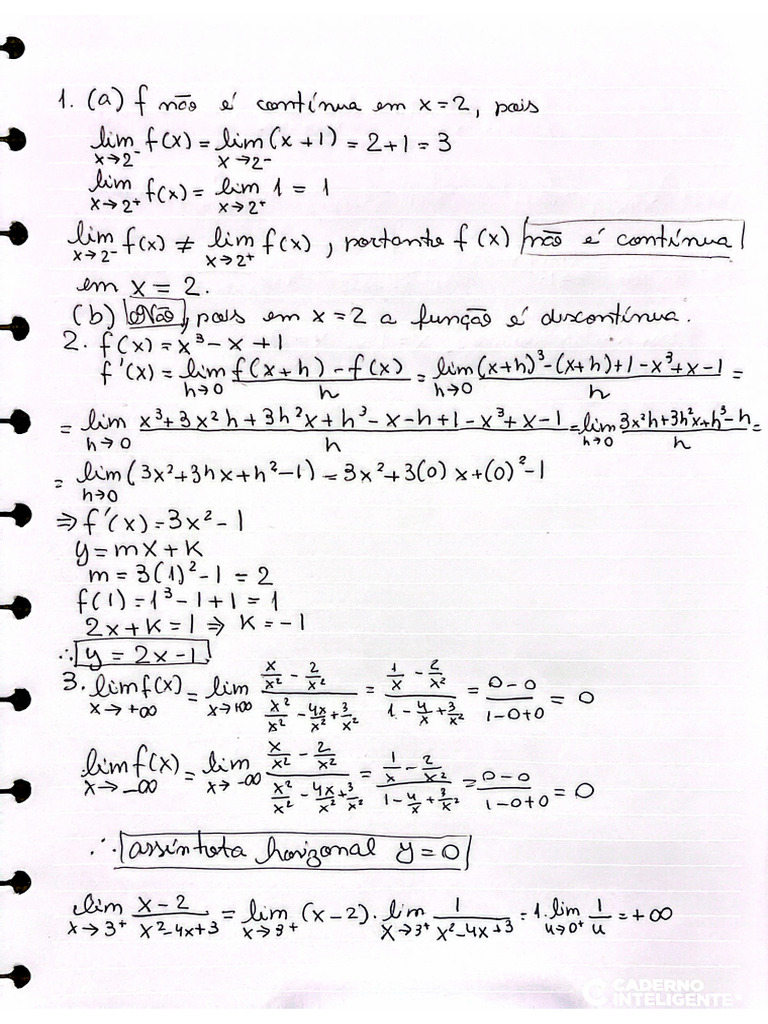 1. (a) f não é contínua em x=2, pois
lim x→2⁻ f(x) = lim x→2⁻ (x+1) = 2+1 = 3
lim x→2⁺ f(x) = lim x→2⁺ 1 = 1
lim x→2⁻ f(x) ≠ lim x→2⁺ f(x), portanto f(x) não é contínua
em x = 2.
(b) Não, pois em x=2 a função é discontínua.
2. f(x) = x³ - x + 1
f'(x) = lim h→0 (f(x+h) - f(x))/h = lim h→0 ((x+h)³-(x+h)+1-x³+x-1)/h =
= lim h→0 (x³+3x²h+3h²x+h³-x-h+1-x³+x-1)/h = lim h→0 (3x²h+3h²x+h³-h)/h =
= lim h→0 (3x²+3hx+h²-1) = 3x²+3(0)x+(0)²-1
⇒ f'(x) = 3x²-1
y = mx + k
m = 3(1)²-1 = 2
f(1) = 1³-1+1 = 1
2x+k = 1 ⇒ k = -1
∴ y = 2x-1
3. lim x→+∞ f(x) = lim x→+∞ (x/x² - 2/x²)/(x²/x² - 4x/x² + 3/x²) = (1/x - 2/x²)/(1 - 4/x + 3/x²) = (0-0)/(1-0+0) = 0
lim x→-∞ f(x) = lim x→-∞ (x/x² - 2/x²)/(x²/x² - 4x/x² + 3/x²) = (1/x - 2/x²)/(1 - 4/x + 3/x²) = (0-0)/(1-0+0) = 0
∴ assíntota horizonal y = 0
lim x→3⁺ (x-2)/(x²-4x+3) = lim x→3⁺ (x-2) · lim x→3⁺ 1/(x²-4x+3) = 1 · lim u→0⁺ 1/u = +∞
CADERNO
INTELIGENTE